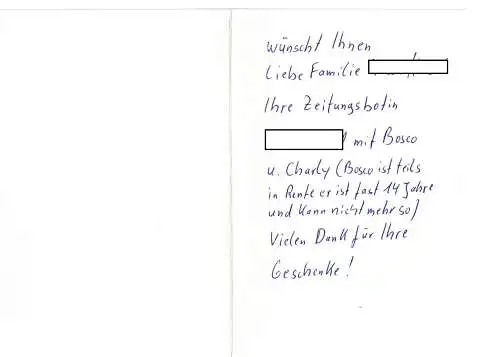 wünscht Ihnen
Liebe Familie
Ihre Zeitungsbotin
mit Bosco
u. Charly (Bosco ist teils
in Rente er ist fast 14 Jahre
und kann nicht mehr so)
Vielen Dank für Ihre
Geschenke!